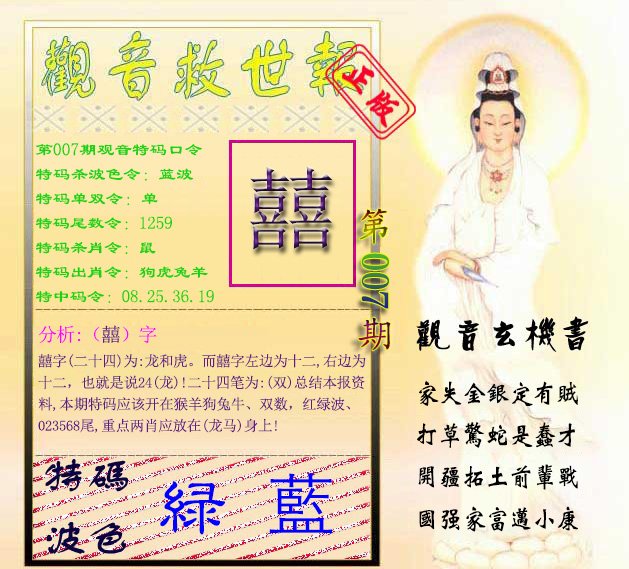 觀音救世報
正版
第007期观音特码口令
特码杀波色令: 蓝波
特码单双令: 单
特码尾数令: 1259
特码杀肖令: 鼠
特码出肖令: 狗虎兔羊
特中码令: 08.25.36.19
囍
第007期
分析:（囍）字
囍字(二十四)为:龙和虎。而囍字左边为十二,右边为
十二, 也就是说24(龙)!二十四笔为:(双)总结本报资
料,本期特码应该开在猴羊狗兔牛、双数, 红绿波、
023568尾,重点两肖应放在(龙马)身上!
特碼
波色
緑 藍
觀音玄機書
家失金銀定有賊
打草驚蛇是蠢才
開疆拓土前輩戰
國强家富邁小康